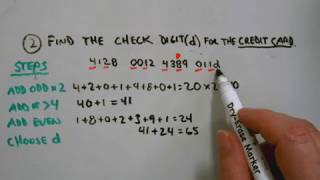 ② FIND THE CHECK DIGIT(d) FOR THE CREDIT CARD.
4128 0012 4389 011d
STEPS
ADD ODD×2 4+2+0+1+4+8+0+1=20×2 0
ADD #>4 40+1=41
ADD EVEN 1+8+0+2+3+9+1=24
CHOOSE d 41+24=65
Dry-Erase Marker